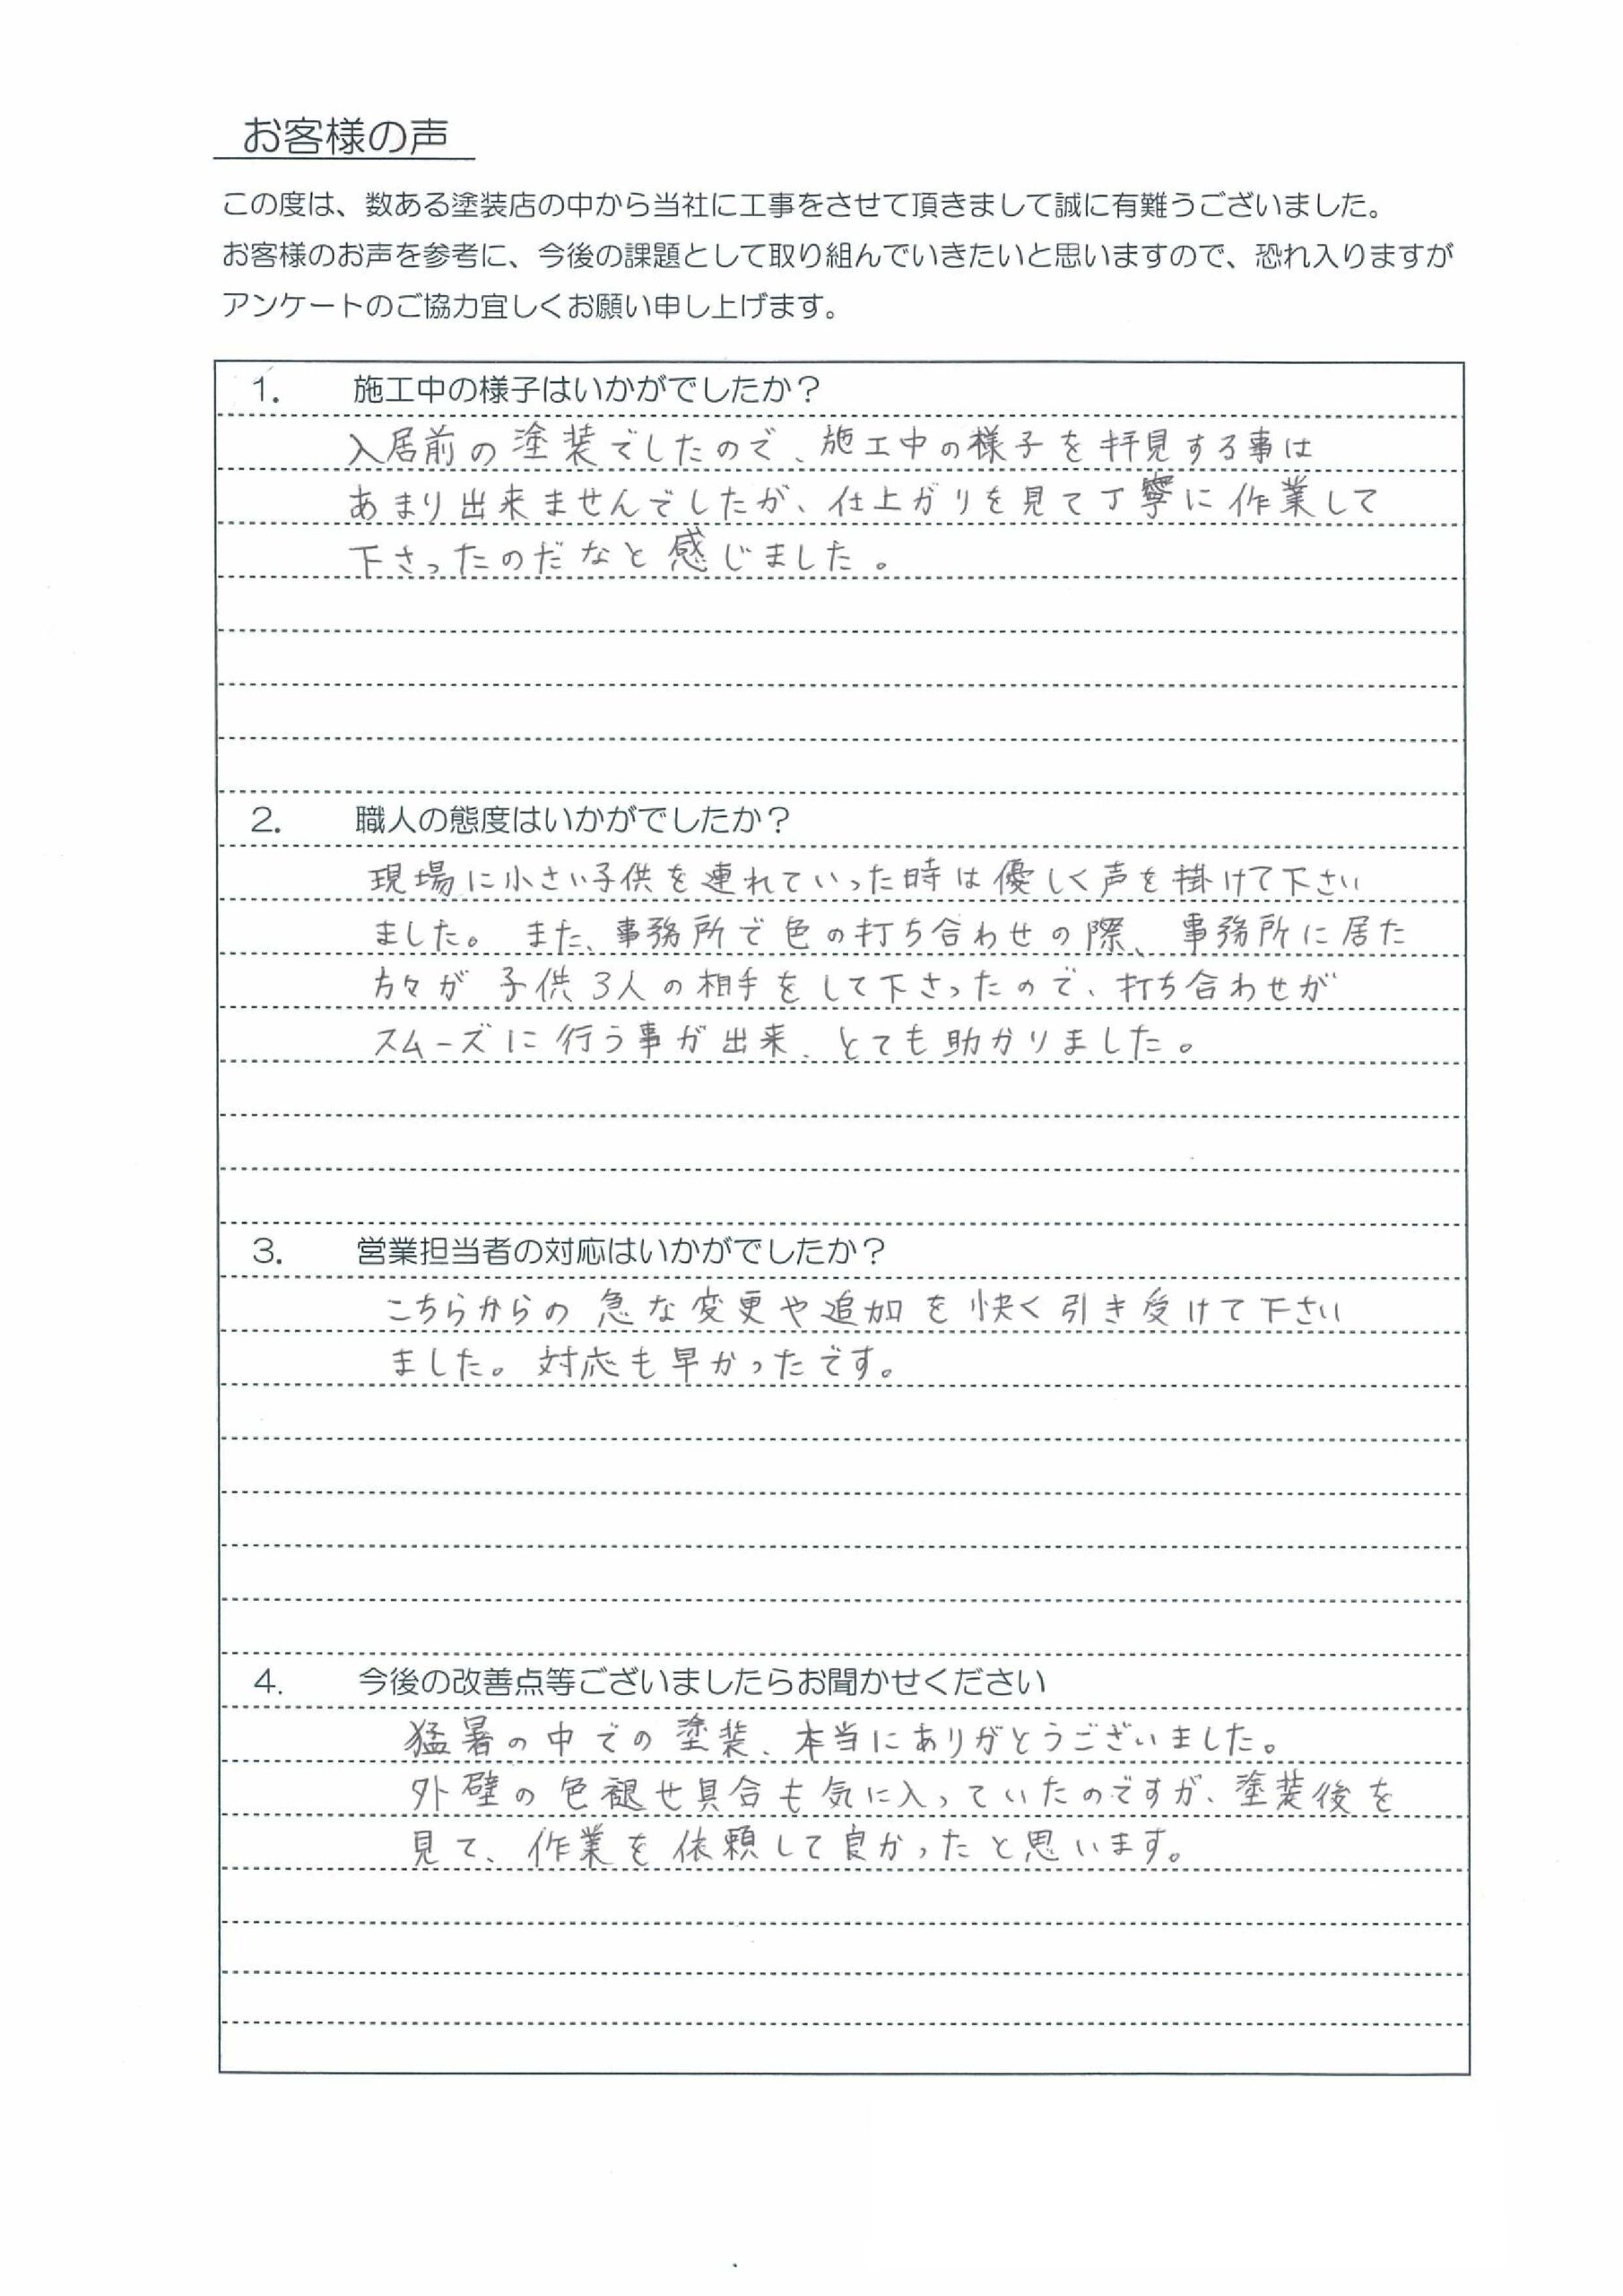 お客様の声
この度は、数ある塗装店の中から当社に工事をさせて頂きまして誠に有難うございました。
お客様のお声を参考に、今後の課題として取り組んでいきたいと思いますので、恐れ入りますが
アンケートのご協力宜しくお願い申し上げます。
1. 施工中の様子はいかがでしたか？
入居前の塗装でしたので、施工中の様子を拝見する事は
あまり出来ませんでしたが、仕上がりを見て丁寧に作業して
下さったのだなと感じました。
2. 職人の態度はいかがでしたか？
現場に小さい子供を連れていった時は優しく声を掛けて下さい
ました。また、事務所で色の打ち合わせの際、事務所に居た
方々が子供3人の相手をして下さったので、打ち合わせが
スムーズに行う事が出来、とても助かりました。
3. 営業担当者の対応はいかがでしたか？
こちらからの急な変更や追加を快く引き受けて下さい
ました。対応も早かったです。
4. 今後の改善点等ございましたらお聞かせください
猛暑の中での塗装、本当にありがとうございました。
外壁の色褪せ具合も気に入っていたのですが、塗装後を
見て、作業を依頼して良かったと思います。